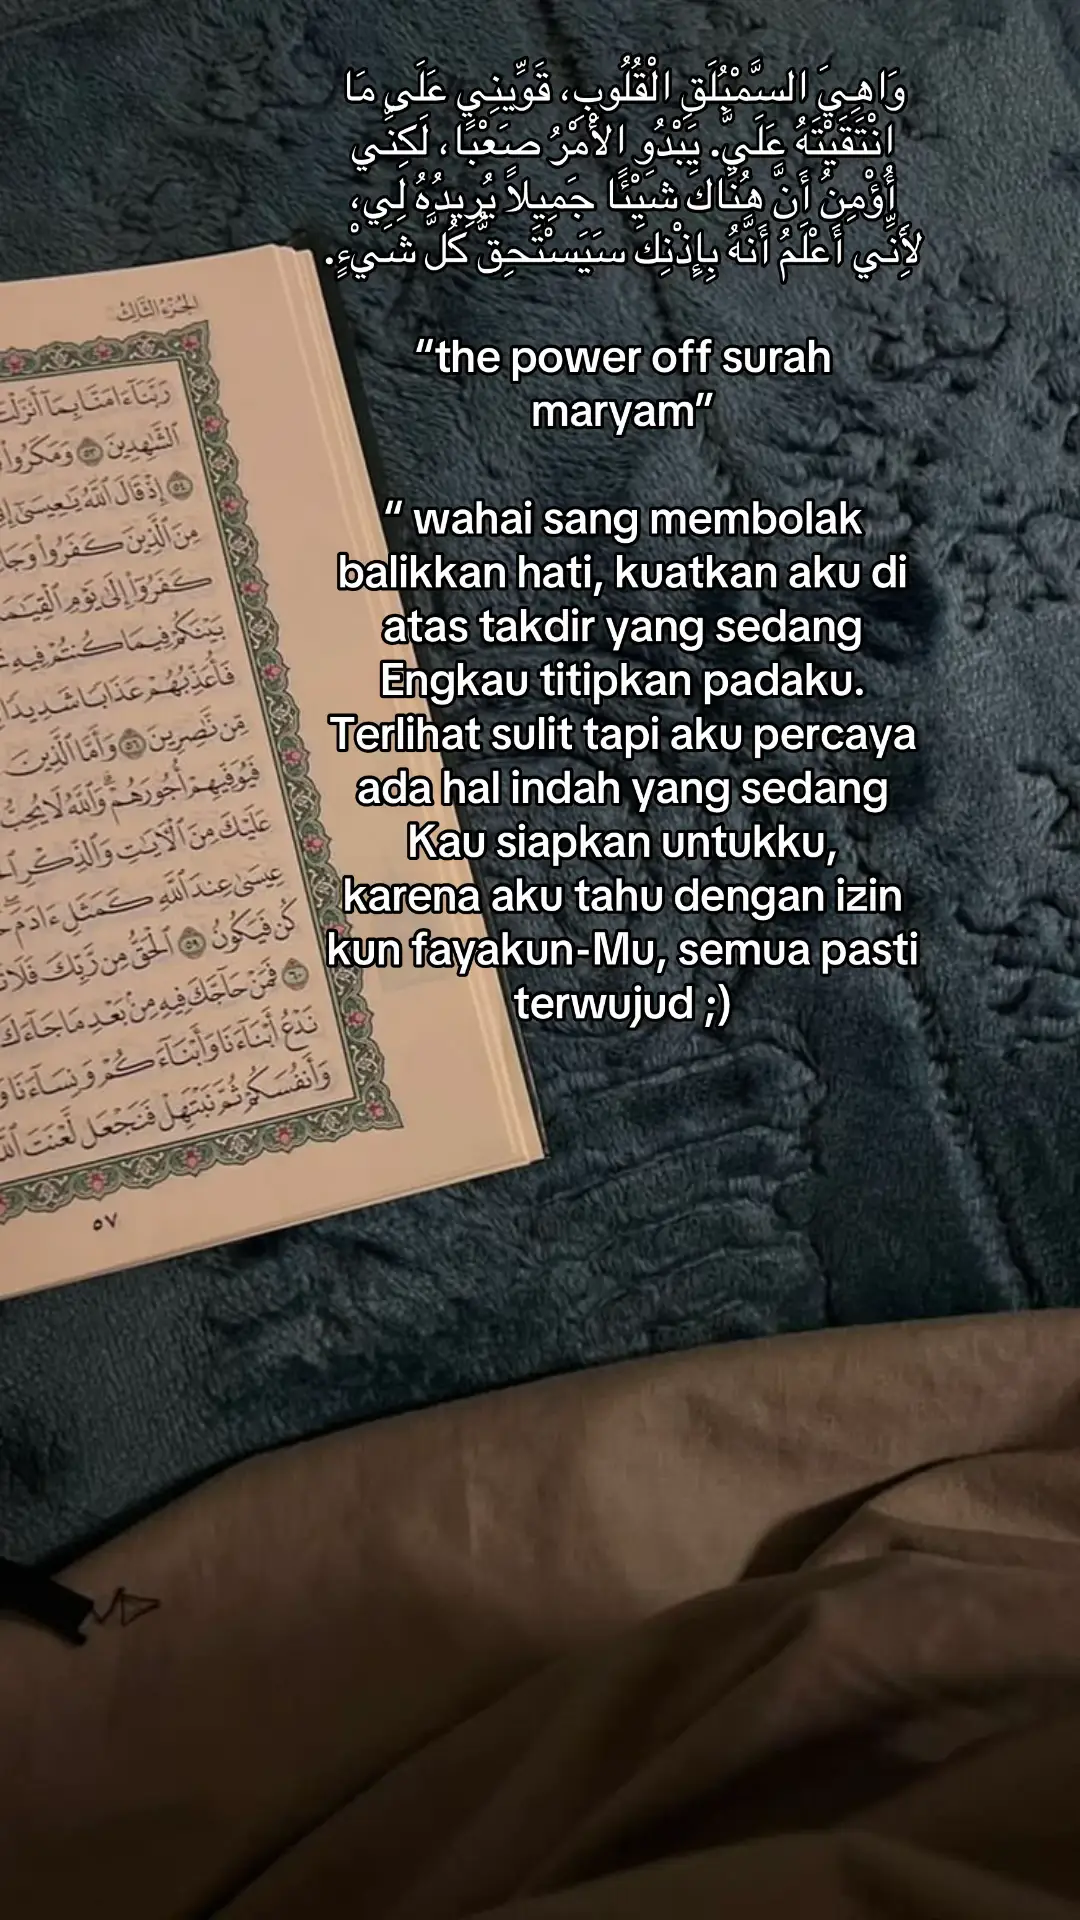 وَاهِيَ السَّمْبُلَقِ الْقُلُوبِ، قَوِّينِي عَلَى مَا
انْتَقَيْتَهُ عَلَيَّ. يَبْدُو الأَمْرُ صَعْبًا، لَكِنِّي
أُؤْمِنُ أَنَّ هُنَاكَ شَيْئًا جَمِيلاً يُرِيدُهُ لِي،
لأَنِّي أَعْلَمُ أَنَّهُ بِإِذْنِكَ سَيَسْتَحِقُّ كُلَّ شَيْءٍ.
“the power off surah
maryam”
“ wahai sang membolak
balikkan hati, kuatkan aku di
atas takdir yang sedang
Engkau titipkan padaku.
Terlihat sulit tapi aku percaya
ada hal indah yang sedang
Kau siapkan untukku,
karena aku tahu dengan izin
kun fayakun-Mu, semua pasti
terwujud ;)
الجُزْءُ الثَّالِثُ
رَبَّنَآ ءَامَنَّا بِمَآ أَنزَلْتَ
ٱلشَّٰهِدِينَ ٥٣ وَمَكَرُوا۟
٥٤ إِذْ قَالَ ٱللَّهُ يَٰعِيسَىٰٓ
مِنَ ٱلَّذِينَ كَفَرُوا۟
كَفَرُوٓا۟ إِلَىٰ يَوْمِ
بَيْنَكُمْ فِيمَا كُنتُمْ فِيهِ
فَأُعَذِّبُهُمْ عَذَابًا شَدِيدًا
مِّن نَّٰصِرِينَ ٥٦ وَأَمَّا ٱلَّذِينَ
فَيُوَفِّيهِمْ أُجُورَهُمْ وَٱللَّهُ لَا يُحِبُّ
عَلَيْكَ مِنَ ٱلْءَايَٰتِ وَٱلذِّكْرِ
عِيسَىٰ عِندَ ٱللَّهِ كَمَثَلِ ءَادَمَ
كُن فَيَكُونُ ٥٩ ٱلْحَقُّ مِن رَّبِّكَ
٦٠ فَمَنْ حَآجَّكَ فِيهِ مِنۢ بَعْدِ مَا جَآءَكَ
نَدْعُ أَبْنَآءَنَا وَأَبْنَآءَكُمْ وَنِسَآءَنَا
وَأَنفُسَكُمْ ثُمَّ نَبْتَهِلْ فَنَجْعَل لَّعْنَتَ
٥٧